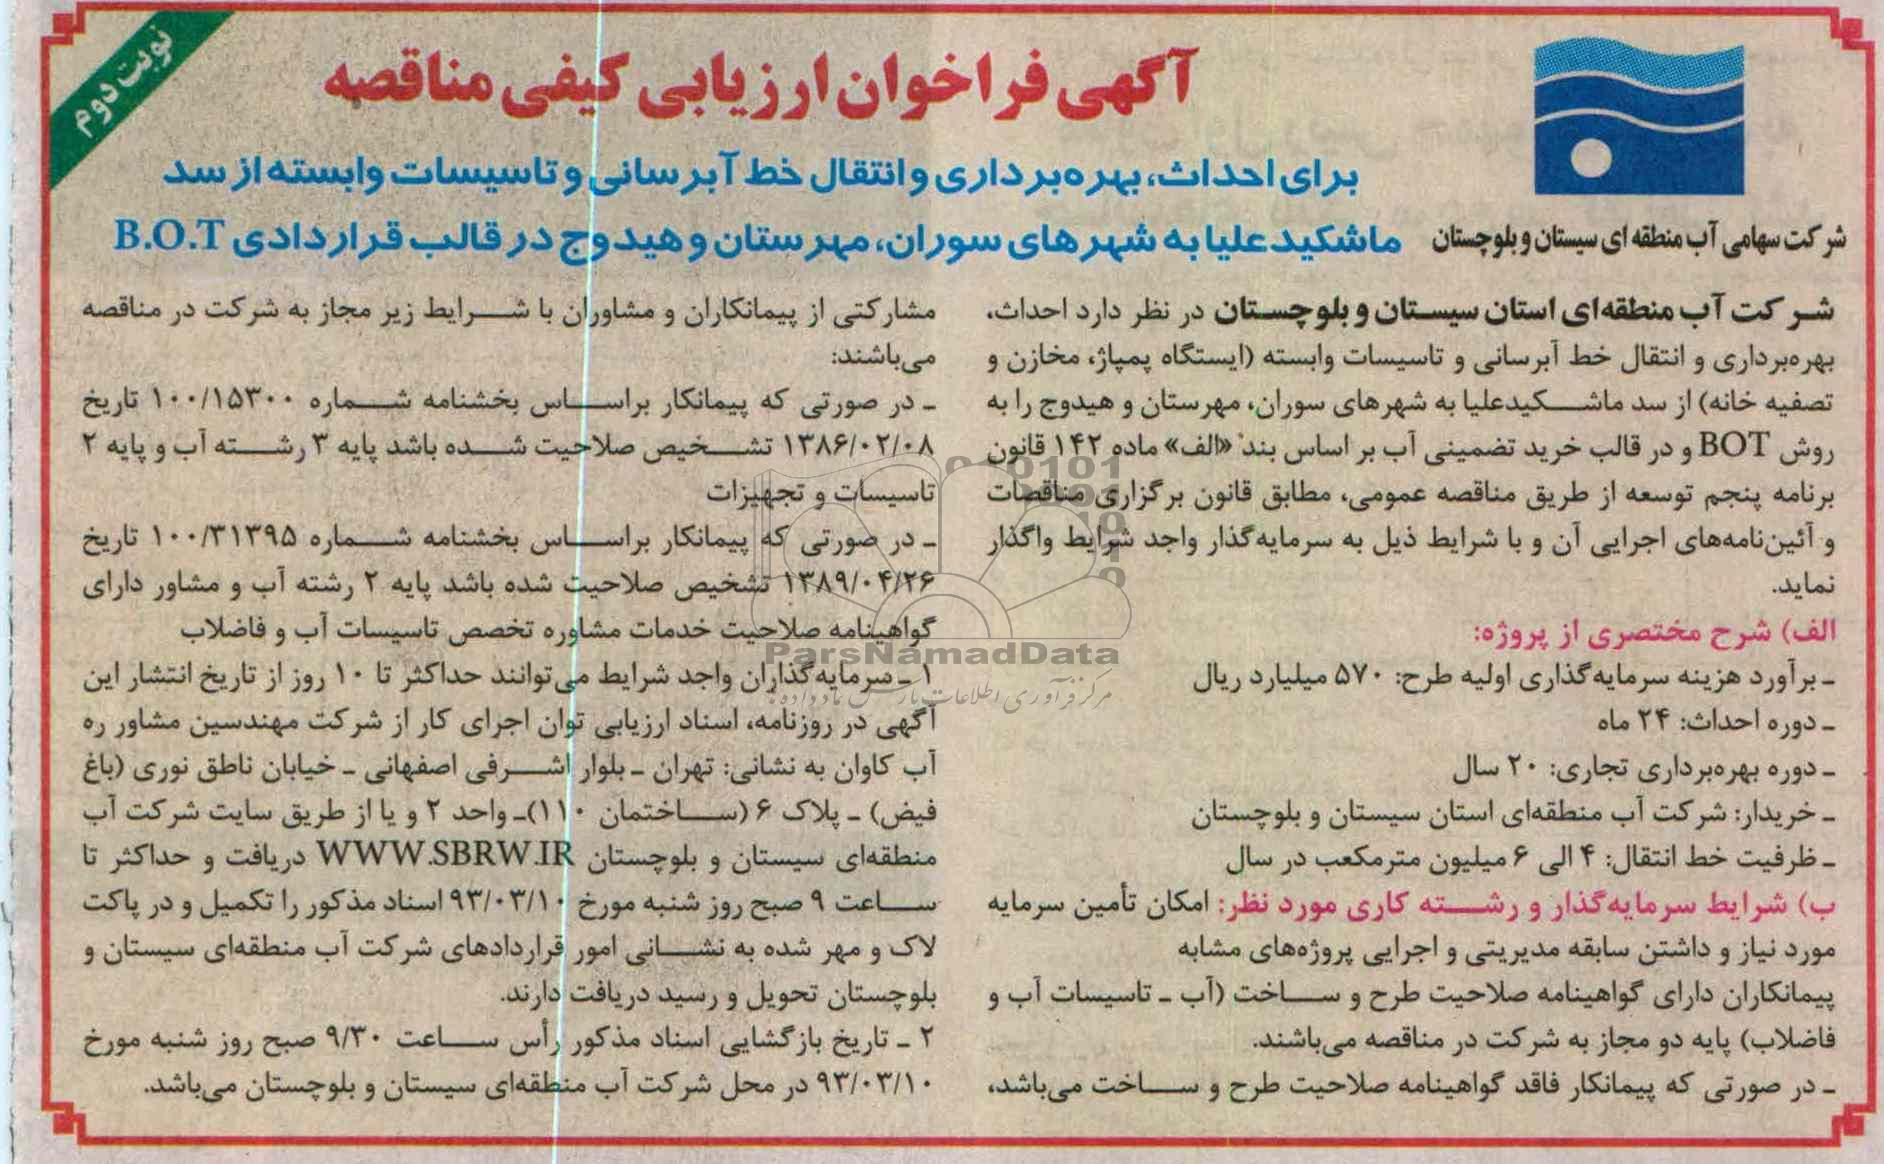 نوبت دوم
آگهی فراخوان ارزیابی کیفی مناقصه
برای احداث، بهره‌برداری و انتقال خط آبرسانی و تاسیسات وابسته از سد
ماشکیدعلیا به شهرهای سوران، مهرستان و هیدوج در قالب قراردادی B.O.T
شرکت سهامی آب منطقه ای سیستان و بلوچستان
شرکت آب منطقه‌ای استان سیستان و بلوچستان در نظر دارد احداث،
بهره‌برداری و انتقال خط آبرسانی و تاسیسات وابسته (ایستگاه پمپاژ، مخازن و
تصفیه خانه) از سد ماشکیدعلیا به شهرهای سوران، مهرستان و هیدوج را به
روش BOT و در قالب خرید تضمینی آب بر اساس بند «الف» ماده ۱۴۲ قانون
برنامه پنجم توسعه از طریق مناقصه عمومی، مطابق قانون برگزاری مناقصات
و آئین‌نامه‌های اجرایی آن و با شرایط ذیل به سرمایه‌گذار واجد شرایط واگذار
نماید.
الف) شرح مختصری از پروژه:
ـ برآورد هزینه سرمایه‌گذاری اولیه طرح: ۵۷۰ میلیارد ریال
ـ دوره احداث: ۲۴ ماه
ـ دوره بهره‌برداری تجاری: ۲۰ سال
ـ خریدار: شرکت آب منطقه‌ای استان سیستان و بلوچستان
ـ ظرفیت خط انتقال: ۴ الی ۶ میلیون مترمکعب در سال
ب) شرایط سرمایه‌گذار و رشته کاری مورد نظر: امکان تأمین سرمایه
مورد نیاز و داشتن سابقه مدیریتی و اجرایی پروژه‌های مشابه
پیمانکاران دارای گواهینامه صلاحیت طرح و ساخت (آب ـ تاسیسات آب و
فاضلاب) پایه دو مجاز به شرکت در مناقصه می‌باشند.
ـ در صورتی که پیمانکار فاقد گواهینامه صلاحیت طرح و ساخت می‌باشد،
مشارکتی از پیمانکاران و مشاوران با شرایط زیر مجاز به شرکت در مناقصه
می‌باشند:
ـ در صورتی که پیمانکار براساس بخشنامه شماره ۱۰۰/۱۵۳۰۰ تاریخ
۱۳۸۶/۰۲/۰۸ تشخیص صلاحیت شده باشد پایه ۳ رشته آب و پایه ۲
تاسیسات و تجهیزات
ـ در صورتی که پیمانکار براساس بخشنامه شماره ۱۰۰/۳۱۳۹۵ تاریخ
۱۳۸۹/۰۴/۲۶ تشخیص صلاحیت شده باشد پایه ۲ رشته آب و مشاور دارای
گواهینامه صلاحیت خدمات مشاوره تخصص تاسیسات آب و فاضلاب
۱ ـ سرمایه‌گذاران واجد شرایط می‌توانند حداکثر تا ۱۰ روز از تاریخ انتشار این
آگهی در روزنامه، اسناد ارزیابی توان اجرای کار از شرکت مهندسین مشاور ره
آب کاوان به نشانی: تهران ـ بلوار اشرفی اصفهانی ـ خیابان ناطق نوری (باغ
فیض) ـ پلاک ۶ (ساختمان ۱۱۰)ـ واحد ۲ و یا از طریق سایت شرکت آب
منطقه‌ای سیستان و بلوچستان WWW.SBRW.IR دریافت و حداکثر تا
ساعت ۹ صبح روز شنبه مورخ ۹۳/۰۳/۱۰ اسناد مذکور را تکمیل و در پاکت
لاک و مهر شده به نشانی امور قراردادهای شرکت آب منطقه‌ای سیستان و
بلوچستان تحویل و رسید دریافت دارند.
۲ ـ تاریخ بازگشایی اسناد مذکور رأس ساعت ۹/۳۰ صبح روز شنبه مورخ
۹۳/۰۳/۱۰ در محل شرکت آب منطقه‌ای سیستان و بلوچستان می‌باشد.
ParsNamadData
مرکز فرآوری اطلاعات پارس نماد داده ها